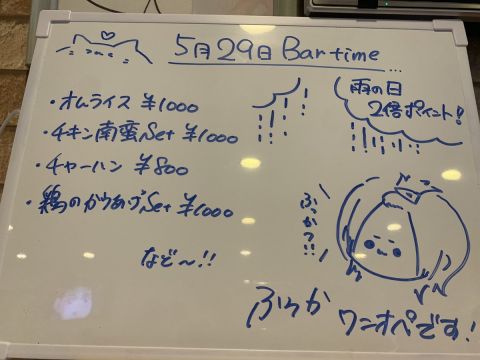 5月29日 Bar time
・オムライス ¥1000
・チキン南蛮Set ¥1000
・チャーハン ¥800
・鶏のからあげSet ¥1000
など〜!!
雨の日
2倍ポイント!
ふっかつ!!
ふうか
ワンオペです!